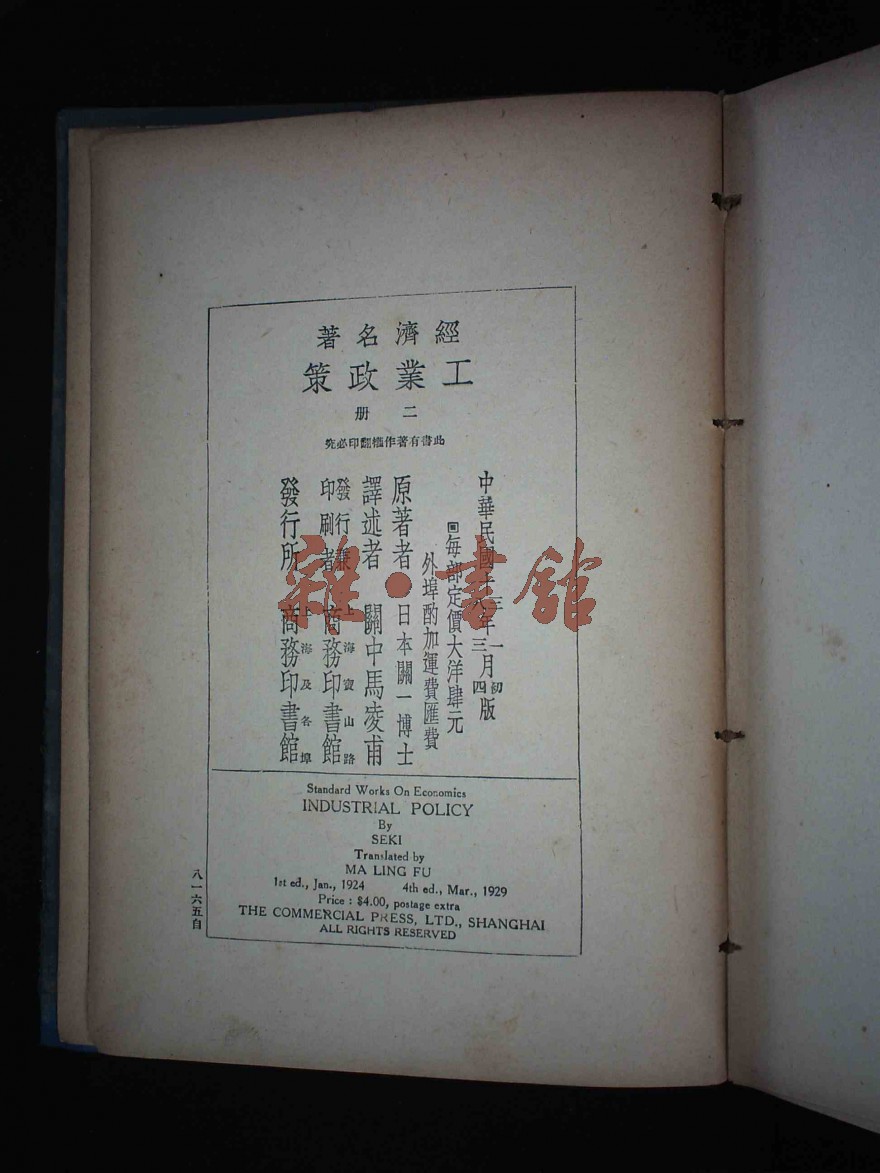 經濟名著
工業政策
二册
此書有著作權翻印必究
中華民國十三年一月初版
八年三月四版
回每部定價大洋肆元
外埠酌加運費匯費
原著者 日本關一博士
譯述者 關中馬凌甫
發行兼印刷者 上海寶山路 商務印書館
發行所 上海及各埠 商務印書館
Standard Works On Economics
INDUSTRIAL POLICY
By
SEKI
Translated by
MA LING FU
1st ed., Jan., 1924 4th ed., Mar., 1929
Price : $4.00, postage extra
THE COMMERCIAL PRESS, LTD., SHANGHAI
ALL RIGHTS RESERVED
八一六五自
雜·書館